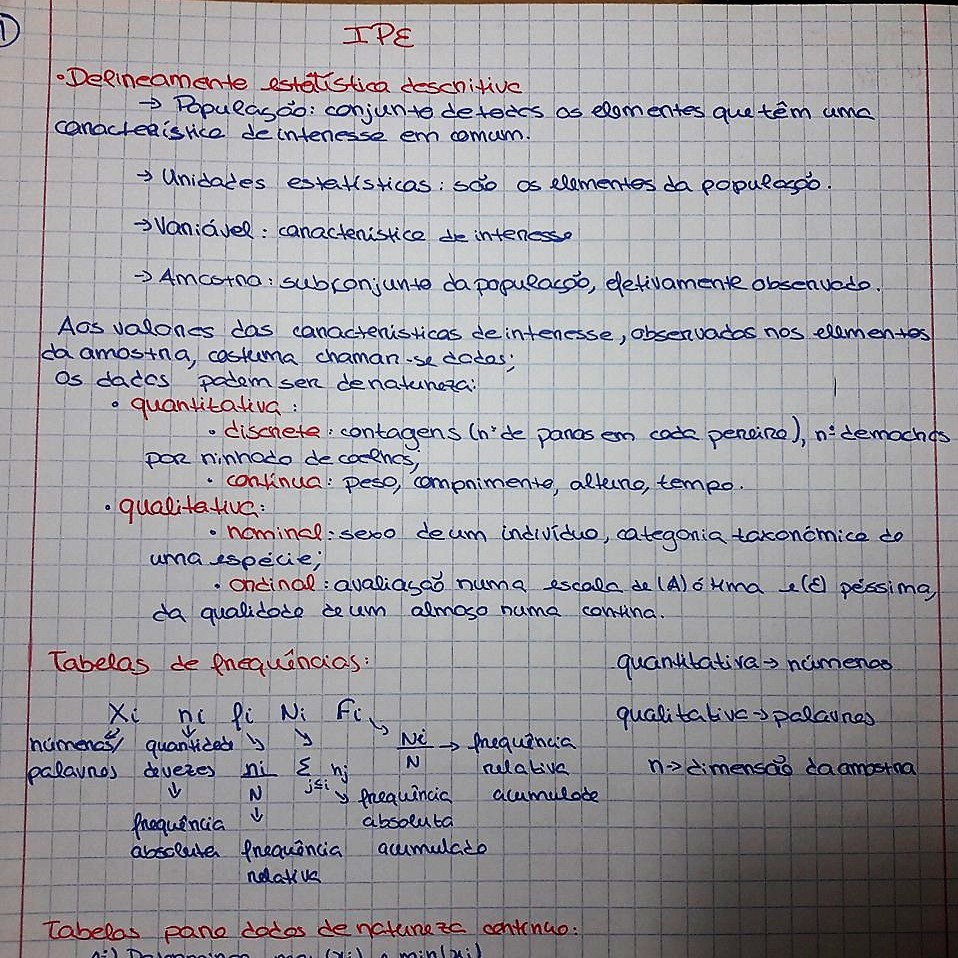 1
IPE
• Delineamento estatística descritiva
→ População: conjunto de todos os elementos que têm uma
característica de interesse em comum.
→ Unidades estatísticas: são os elementos da população.
→ Variável: característica de interesse
→ Amostra: subconjunto da população, efetivamente observado.
Aos valores das características de interesse, observados nos elementos
da amostra, costuma chamar-se dados;
Os dados podem ser de natureza:
• quantitativa:
• discreta: contagens (nº de paras em cada pereira), nº de machos
por ninhada de coelhos;
• contínua: peso, comprimento, altura, tempo.
• qualitativa:
• nominal: sexo de um indivíduo, categoria taxonómica de
uma espécie;
• ordinal: avaliação numa escala de (A) ótima e (E) péssima,
da qualidade de um almoço numa cantina.
Tabelas de frequências: quantitativa → números
Xi ni fi Ni Fi qualitativa → palavras
números/ quantidade ↘ ↘ Ni → frequência
palavras de vezes ni Σ nj N relativa n → dimensão da amostra
↓ N j≤i ↘ frequência acumulada
frequência ↓ absoluta
absoluta frequência acumulada
relativa
Tabelas para dados de natureza contínua: